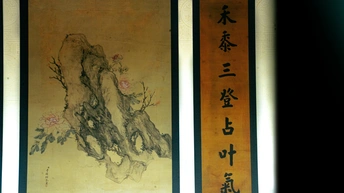 禾黍三登占叶氣